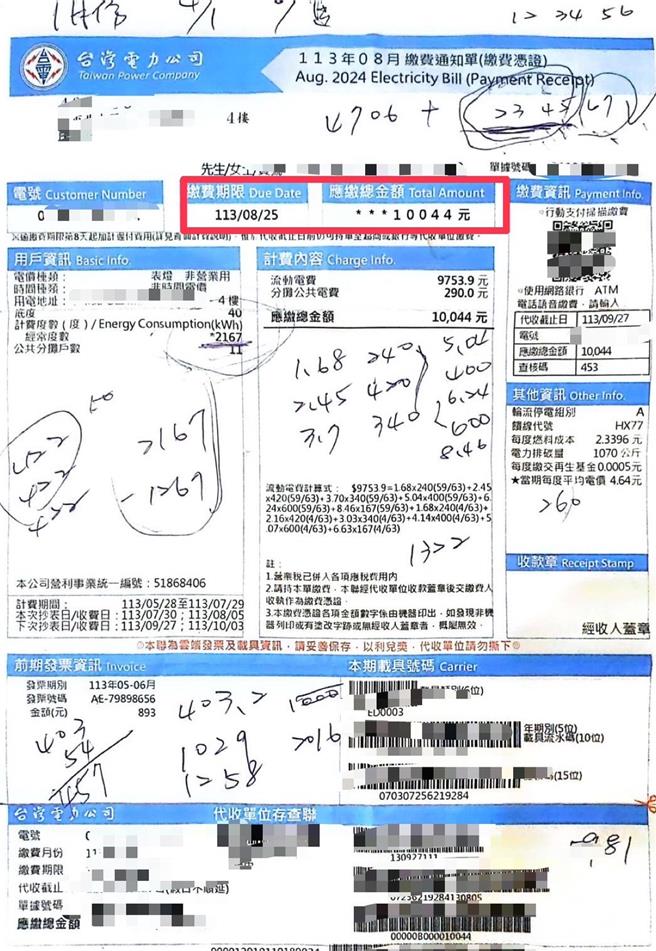 12 34 56
台灣電力公司
Taiwan Power Company
113年08月 繳費通知單(繳費憑證)
Aug. 2024 Electricity Bill (Payment Receipt)
4樓
4706 + 2345
電號 Customer Number
繳費期限 Due Date
應繳總金額 Total Amount
113/08/25
***10044元
繳費資訊 Payment Info.
行動支付掃描繳費
※使用網路銀行 ATM
電話語音繳費,請輸入
代收截止日 113/09/27
電號
應繳總金額 10,044
查核碼 453
用戶資訊 Basic Info.
電價種類: 表燈 非營業用
時間種類: 非時間電價
用電地址: 4樓
底度 40
計費度數(度)/Energy Consumption(kWh)
經常度數 *2167
公共分攤戶數 11
計費內容 Charge Info.
流動電費 9753.9元
分攤公共電費 290.0元
應繳總金額 10,044元
1.68 240
2.45 420
3.7 340
5.04
400
6.24
600
8.46
2167
-1267
流動電費計算式: $9753.9=1.68x240(59/63)+2.45
x420(59/63)+3.70x340(59/63)+5.04x400(59/63)+6.
24x600(59/63)+8.46x167(59/63)+1.68x240(4/63)+
2.16x420(4/63)+3.03x340(4/63)+4.14x400(4/63)+
5.07x600(4/63)+6.63x167(4/63)
1322
註:
1.營業稅已併入各項應稅費用內
2.請持本單繳費,本聯經代收單位收款蓋章後交繳費人
收執作為繳費憑證。
3.本繳費憑證各項金額數字係由機器印出,如發現非機
器列印或有塗改字跡或無經收人蓋章者,概屬無效。
其他資訊 Other Info.
輪流停電組別 A
饋線代號 HX77
每度燃料成本 2.3396元
電力排碳量 1070公斤
每度繳交再生基金0.0005元
★當期每度平均電價 4.64元
260
收款章 Receipt Stamp
經收人蓋章
本公司營利事業統一編號:51868406
計費期間:113/05/28至113/07/29
本次抄表日/收費日:113/07/30 113/08/05
下次抄表日/收費日:113/09/27 113/10/03
※本聯為雲端發票及載具資訊,請妥善保存,以利兌獎,代收單位請勿撕下※
前期發票資訊 Invoice
發票期別 113年05-06月
發票號碼 AE-79898656
金額(元) 893
403.2
1029
1258
2016
403
54
本期載具號碼 Carrier
ED0003
年期別(5位)
載具流水碼(10位)
(15位)
070307256219284
台灣電力公司
代收單位存查聯
電號
繳費月份
繳費期限
代收截止
單據號碼
應繳總金額
130927111
0725619284130805
00000800010044
981